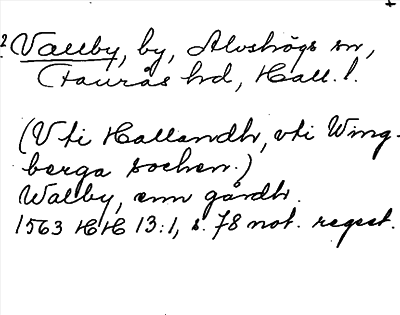 ? Vallby, by, Alvshögs sn,
Faurås hd, Hall. l.
(Vti Hallandh, vti Wing-
berga sochen.)
Walby, enn gårdh.
1563 HH 13:1, s. 78 not. regest.